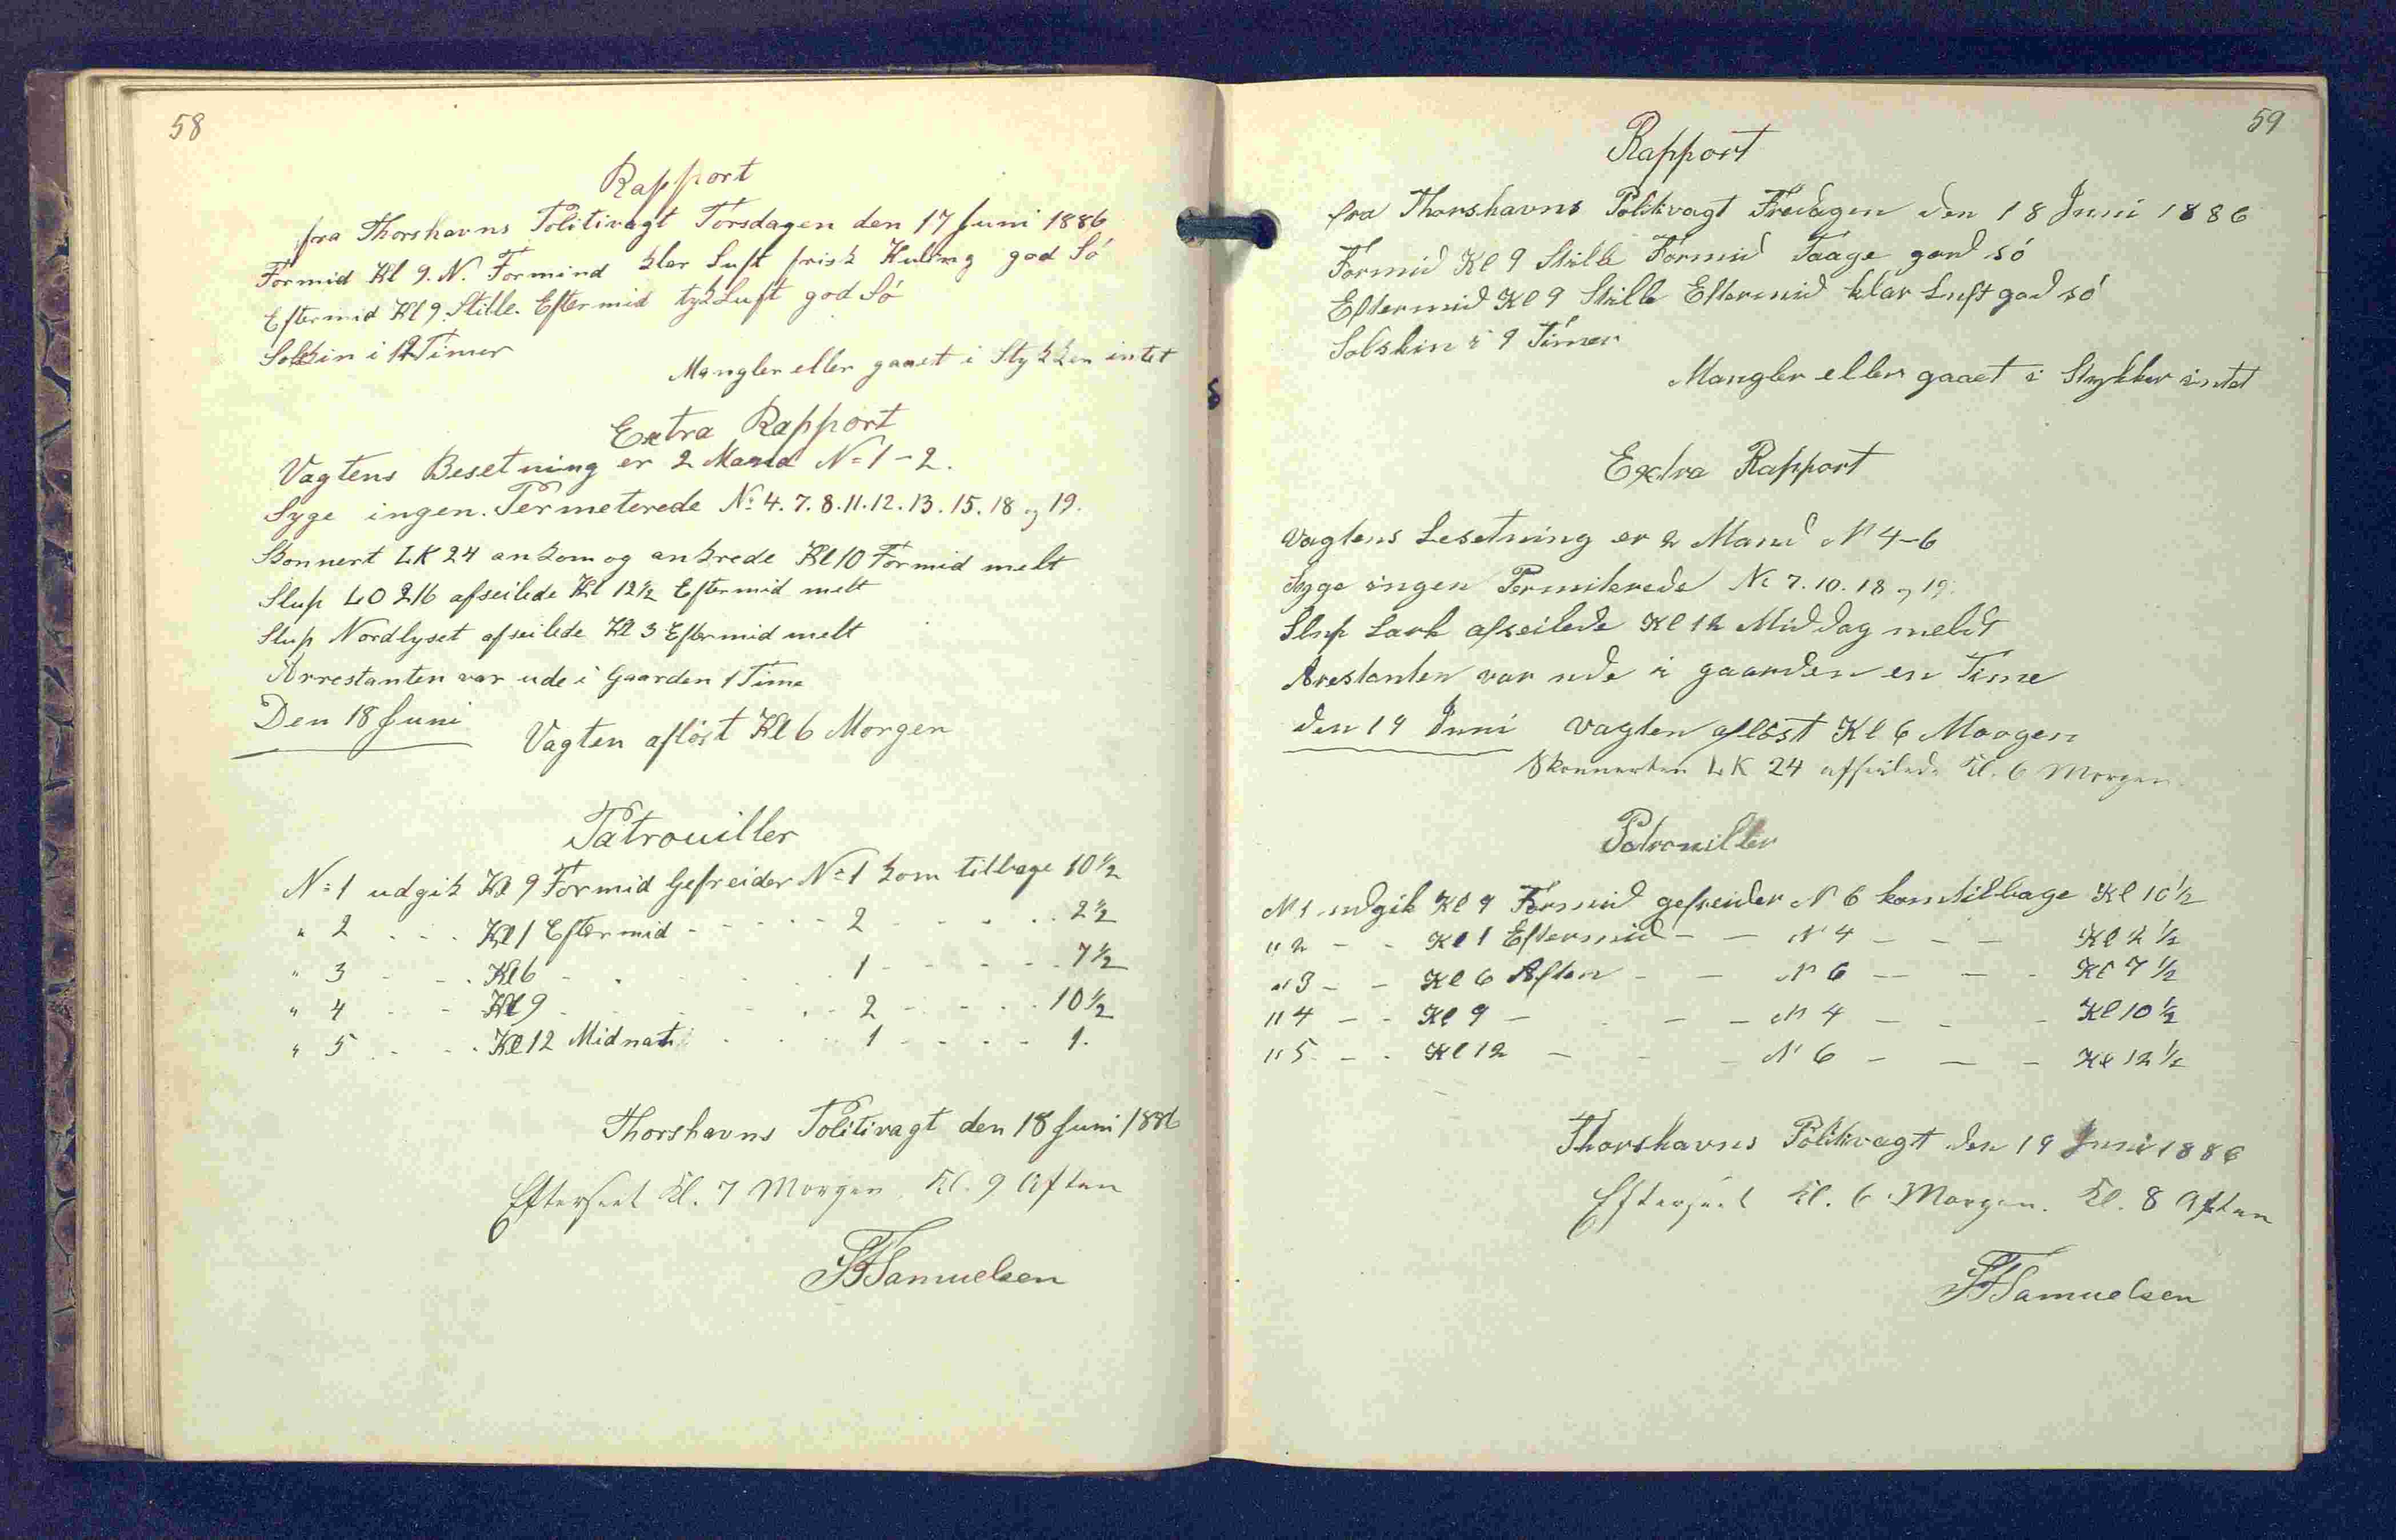 58
Rapport
fra Thorshavns Politivagt Torsdagen den 17 Juni 1886
Formid Kl 9. N. Formind klar Luft frisk Kuling god Sö
Eftermid Kl 9. Stille. Eftermid tyk Luft god Sö
Solskin i 12 Timer
Mangler eller gaaet i Stykker intet
Extra Rapport
Vagtens Besetning er 2 Mand No 1-2.
Syge ingen. Permeterede No. 4. 7. 8. 11. 12. 13. 15. 18 og 19.
Skonnert LK 24 ankom og ankrede Kl 10 Formid melt
Slup LO 216 afseilede Kl 12½ Eftermid melt
Slup Nordlyset afseilede Kl 3 Eftermid melt
Arrestanten var ude i Gaarden 1 Time
Den 18 Juni Vagten aflöst Kl 6 Morgen
Patrouiller
No 1 udgik Kl 9 Formid Gefreider No 1 kom tilbage 10½
" 2 - - - Kl 1 Eftermid - - - - - 2 - - - - - 2½
" 3 - - - Kl 6 - - - - 1 - - - - - 7½
" 4 - - - Kl 9 - - - - 2 - - - - - 10½
" 5 - - - Kl 12 Midnat - - - - 1 - - - - - 1.
Thorshavns Politivagt den 18 Juni 1886
Efterseet Kl. 7 Morgen, Kl. 9 Aften
Samuelsen
59
Rapport
fra Thorshavns Politivagt Fredagen den 18 Juni 1886
Formid Kl 9 Stille Formid Taage god sö
Eftermid Kl 9 Stille Eftermid klar Luft god sö
Solskin i 9 Timer
Mangler eller gaaet i Stykker intet
Extra Rapport
Vagtens Besetning er 2 Mand N 4-6
Syge ingen Permiterede No 7. 10. 18 og 19.
Slup Lark afseilede Kl 12 Middag meldt
Arestanten var ude i gaarden en Time
den 19 Juni vagten aflöst Kl 6 Morgen
Skonnerten LK 24 afseilede Kl. 6 Morgen
Patrouiller
N 1 udgik Kl 9 Formid gefreider N 6 kom tilbage Kl 10½
" 2 - - Kl 1 Eftermid - - N 4 - - - Kl 2½
" 3 - - Kl 6 Aften - - N 6 - - - Kl 7½
" 4 - - Kl 9 - - - - N 4 - - - Kl 10½
" 5 - - Kl 12 - - - N 6 - - - Kl 12½
Thorshavns Politivagt den 19 Juni 1886
Efterseet Kl. 6 Morgen. Kl. 8 Aften
Samuelsen